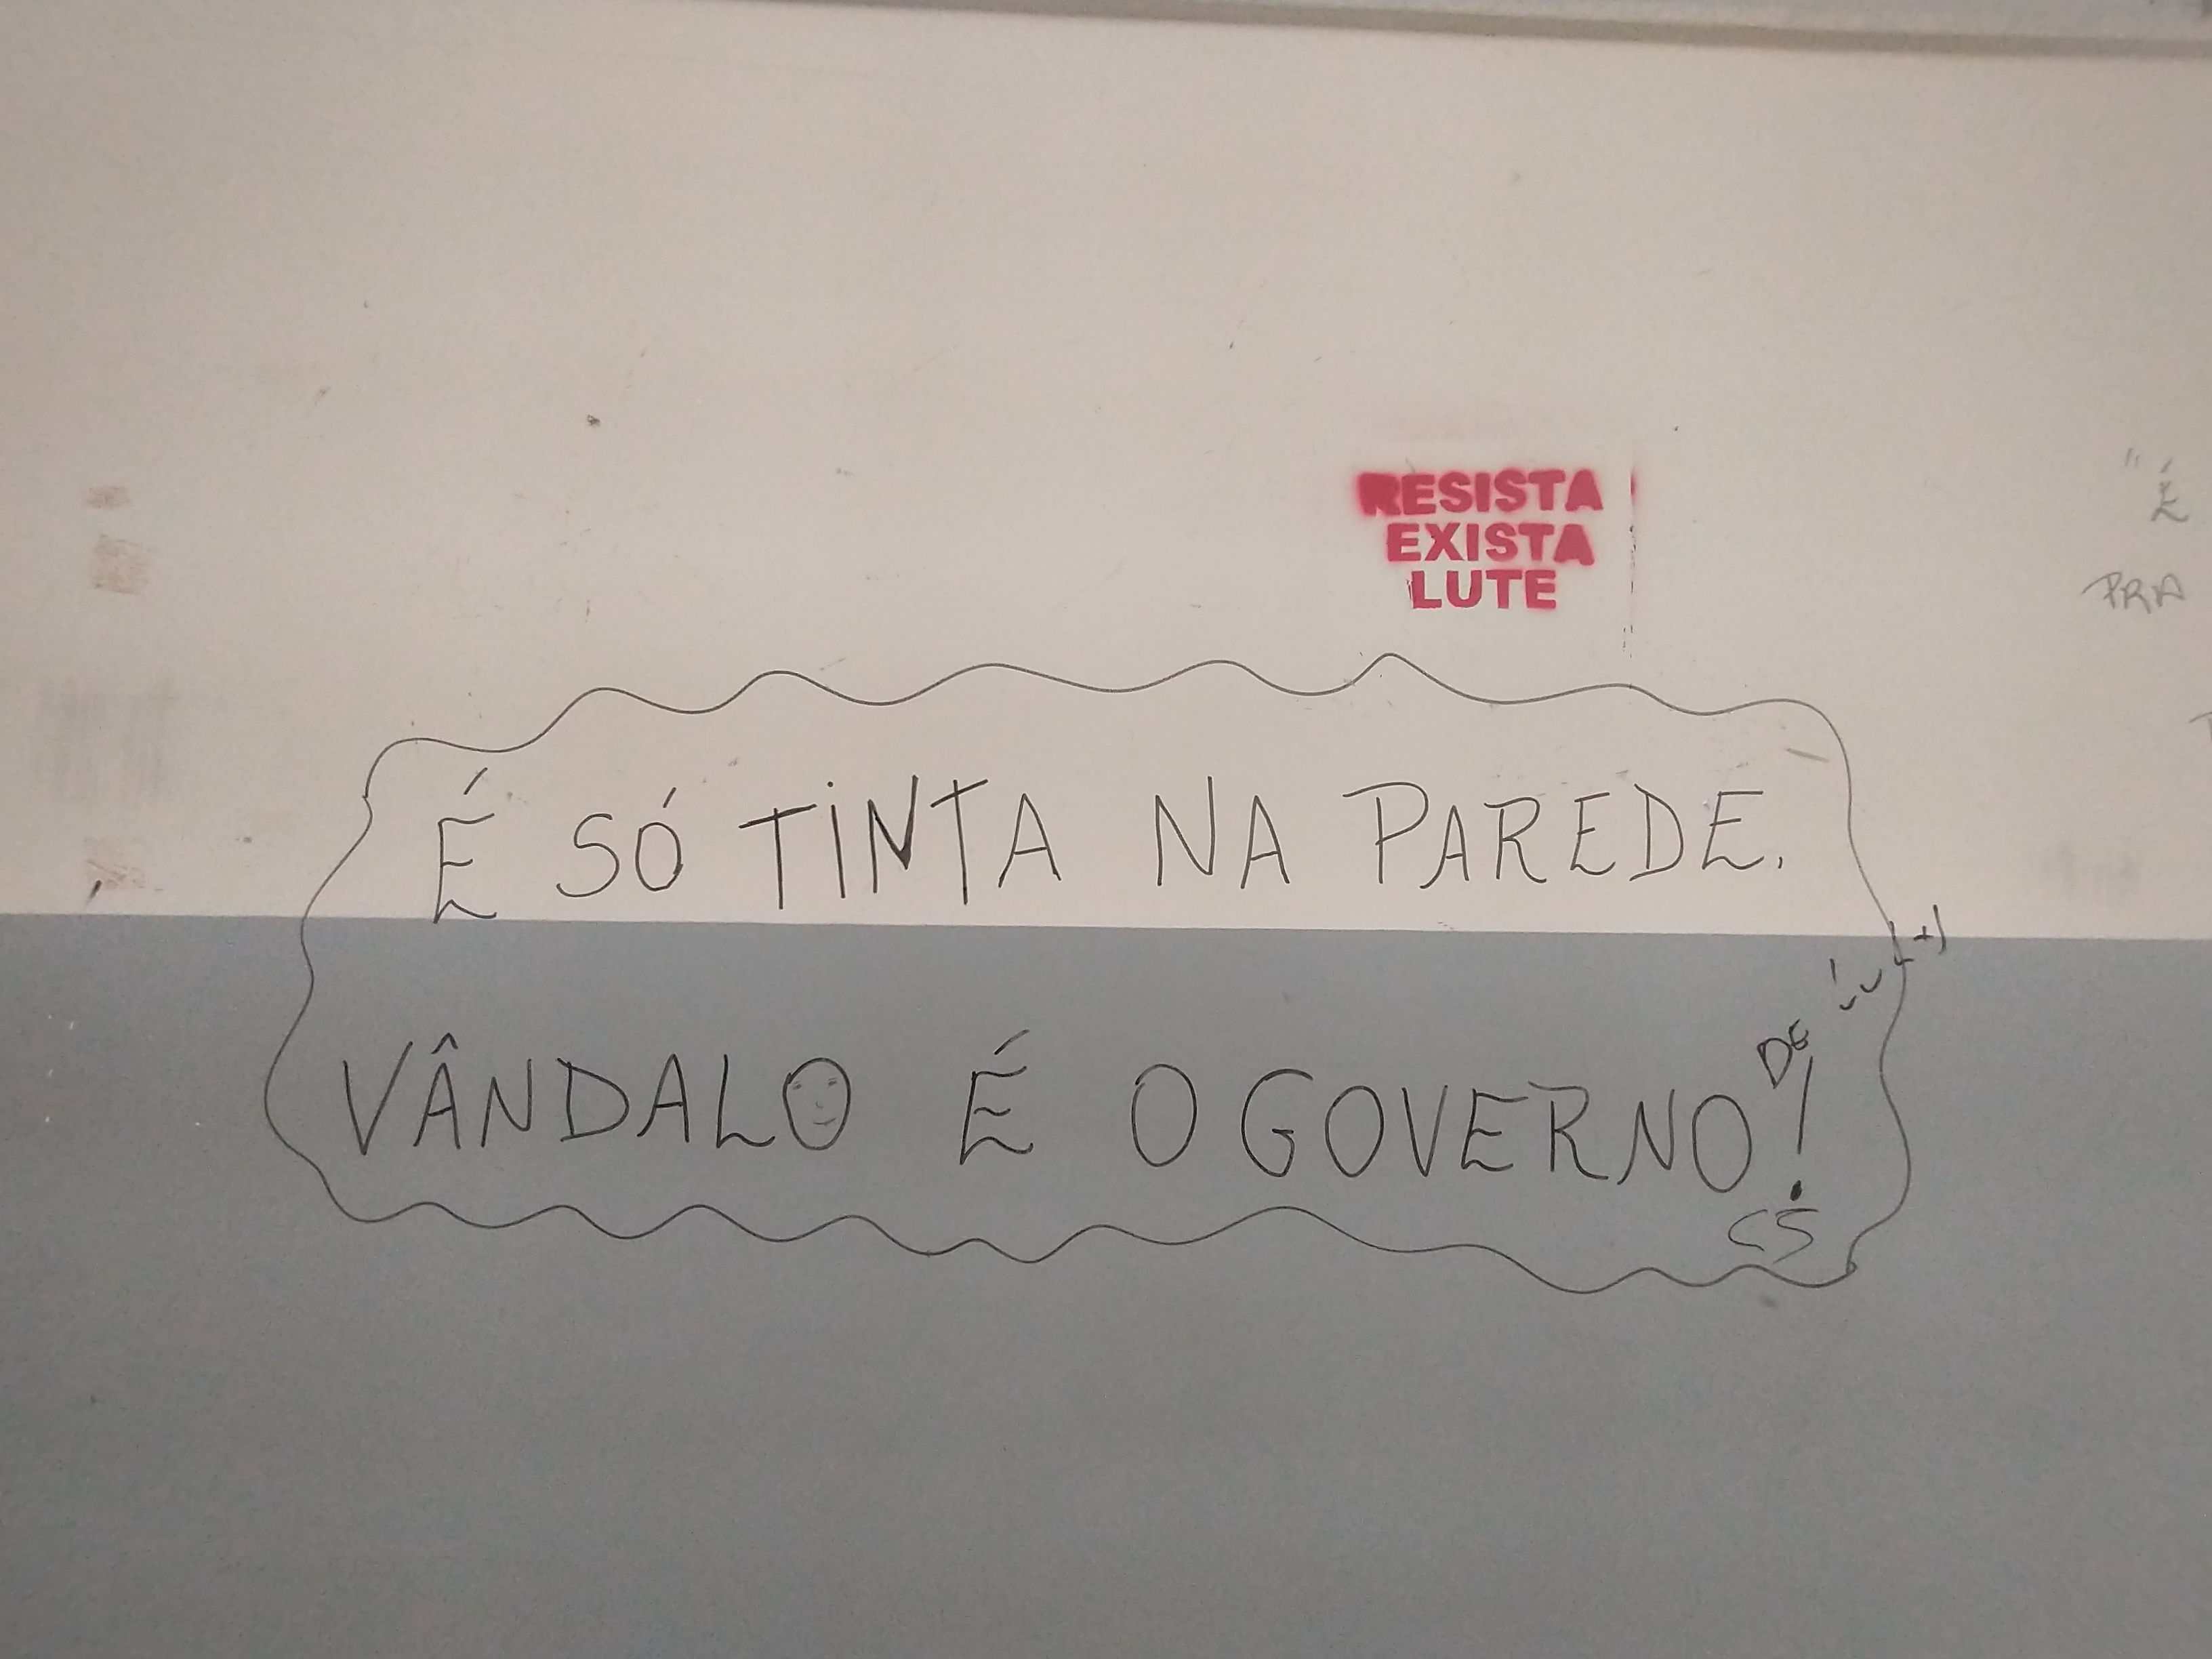 RESISTA
EXISTA
LUTE
"É
PRA
É SÓ TINTA NA PAREDE.
VÂNDALO É O GOVERNO!
DE
CS